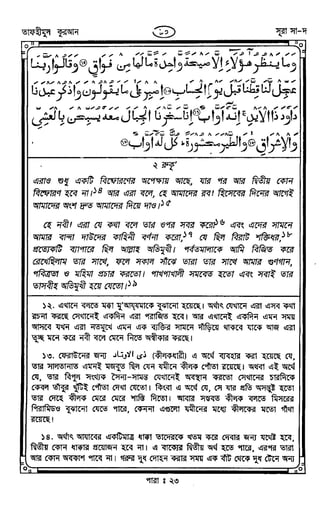 তাফহীমুল কুরআন
১০
সূরা সা-দ
وَمَا يَنظُرُ هَٰؤُلَاءِ إِلَّا صَيْحَةً وَاحِدَةً مَّا لَهَا مِن فَوَاقٍ ⑮ وَقَالُوا رَبَّنَا
عَجِّل لَّنَا قِطَّنَا قَبْلَ يَوْمِ الْحِسَابِ ⑯ اصْبِرْ عَلَىٰ مَا يَقُولُونَ وَاذْكُرْ عَبْدَنَا
دَاوُودَ ذَا الْأَيْدِ إِنَّهُ أَوَّابٌ ⑰ إِنَّا سَخَّرْنَا الْجِبَالَ مَعَهُ يُسَبِّحْنَ بِالْعَشِيِّ
وَالْإِشْرَاقِ ⑱ وَالطَّيْرَ مَحْشُورَةً كُلٌّ لَّهُ أَوَّابٌ ⑲
২ রুকূ'
এরাও শুধু একটি বিষ্ফোরণের অপেক্ষায় আছে, যার পর আর দ্বিতীয় কোন
বিষ্ফোরণ হবে না।১৪ আর এরা বলে, হে আমাদের রব! হিসেবের দিনের আগেই
আমাদের অংশ দ্রুত আমাদের দিয়ে দাও।১৫
হে নবী! এরা যে কথা বলে তার ওপর সবর করো১৬ এবং এদের সামনে
আমার বান্দা দাউদের কাহিনী বর্ণনা করো,১৭ যে ছিল বিরাট শক্তিধর,১৮
প্রত্যেকটি ব্যাপারে ছিল আল্লাহ অভিমুখী। পর্বতমালাকে আমি বিজিত করে
রেখেছিলাম তার সাথে, ফলে সকাল সাঁঝে তারা তার সাথে আমার গুণগান,
পবিত্রতা ও মহিমা প্রচার করতো। পাখপাখালী সমবেত হতো এবং সবাই তার
তাসবীহ অভিমুখী হয়ে যেতো।১৯
১২. এখানে বলতে মক্কা মু'আয্‌যমাকে বুঝানো হয়েছে। অর্থাৎ যেখানে এরা এসব কথা
রচনা করছে সেখানেই একদিন এরা পরাজিত হবে। আর সেখানেই একদিন এমন সময়
আসবে যখন এরা নতমুখে এমন এক ব্যক্তির সামনে দাঁড়িয়ে থাকবে যাকে আজ এরা
তুচ্ছ মনে করে নবী বলে মেনে নিতে অস্বীকার করছে।
১৩. ফেরাউনের জন্য ذى الاوتاد (কীলকধারী) এ অর্থে ব্যবহার করা হয়েছে যে,
তার সালতানাত এমনই মজবুত ছিল যেন যমীনে কীলক পোঁতা রয়েছে। অথবা এই অর্থে
যে, তার বিপুল সংখ্যক সৈন্য-সামন্ত যেখানেই অবস্থান করতো সেখানের চারদিকে
কেবল তাঁবুর খুঁটিই পোঁতা দেখা যেতো। কিংবা এ অর্থে যে, সে যার প্রতি অসন্তুষ্ট হতো
তার দেহে কীলক মেরে মেরে শাস্তি দিতো। আবার সম্ভবত কীলক বলতে মিসরের
পিরামিডও বুঝানো যেতে পারে, কেননা এগুলো যমীনের মধ্যে কীলকের মতো গাঁথা
রয়েছে।
১৪. অর্থাৎ আযাবের একটিমাত্র ধাক্কা তাদেরকে খতম করে দেবার জন্য যথেষ্ট হবে,
দ্বিতীয় কোন ধাক্কার প্রয়োজন হবে না। এ বাক্যের দ্বিতীয় অর্থ হতে পারে, এরপর তারা
আর কোন অবকাশ পাবে না। গরুর দুধ দোহন করার সময় এক বাঁট থেকে দুধ টেনে অন্য
পারা : ২৩